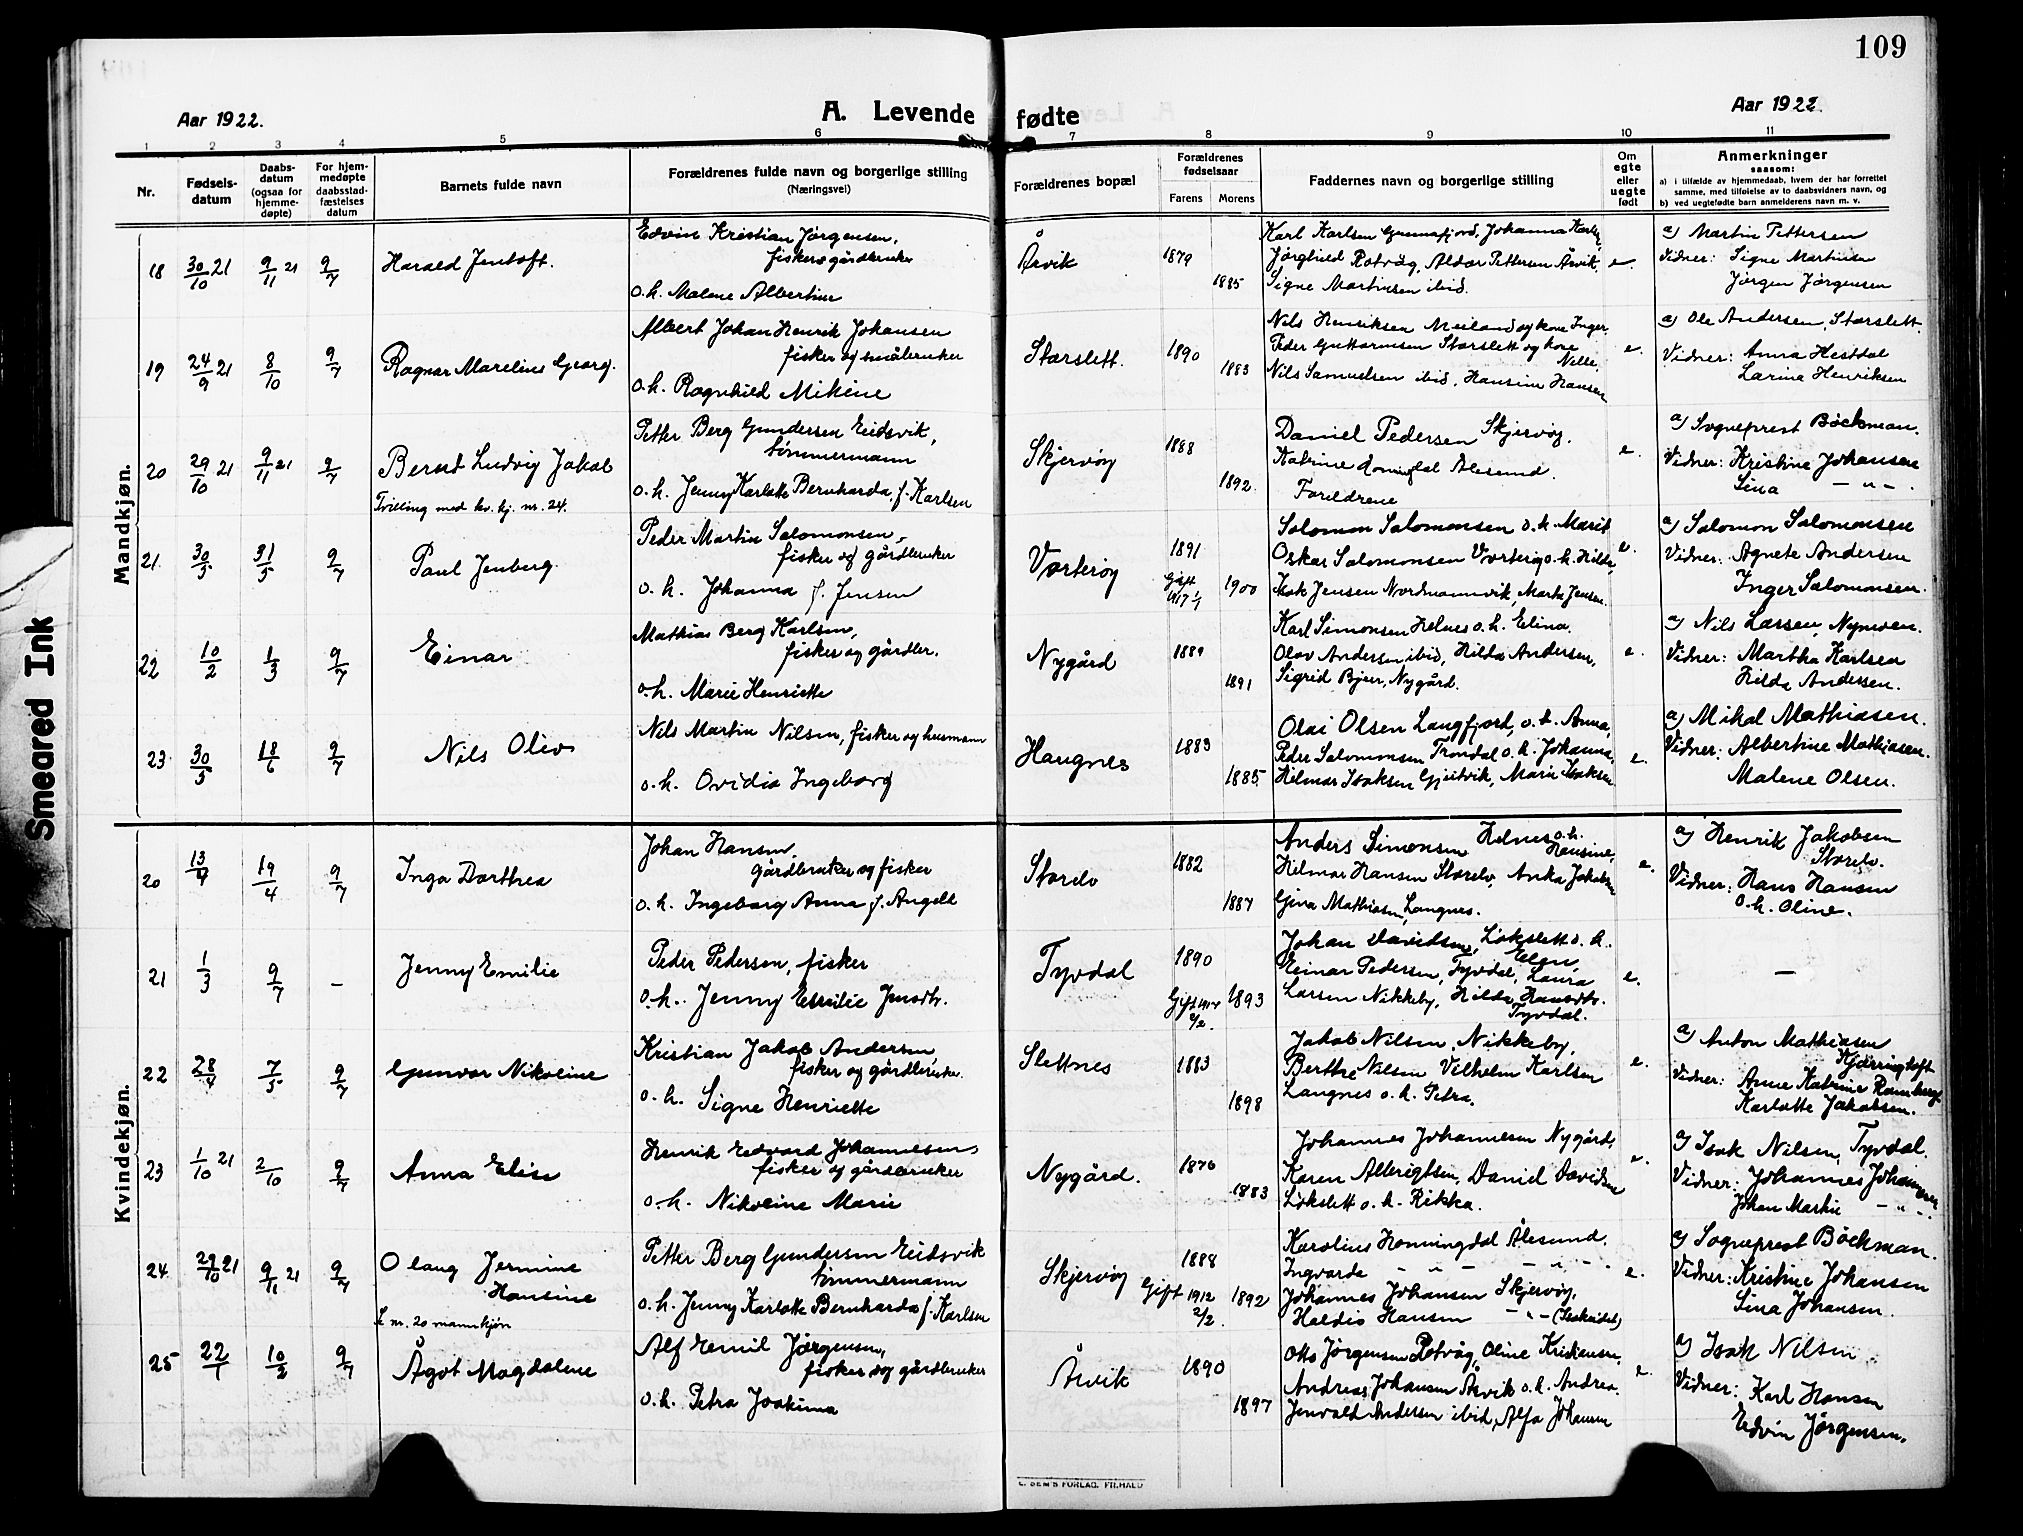 109
Aar 1922.
A. Levende
fødte
Aar 1922.
1 2 3 4 5 6 7 8 9 10 11
Nr.
Fødsels-
datum
Daabs-
datum
(ogsaa for
hjemme-
døpte)
For hjem-
medøpte
daabsstad-
fæstelses
datum
Barnets fulde navn
Forældrenes fulde navn og borgerlige stilling
(Næringsvei)
Forældrenes bopæl
Forældrenes
fødselsaar
Farens Morens
Faddernes navn og borgerlige stilling
Om
egte
eller
uegte
født
Anmerkninger
saasom:
a) i tilfælde av hjemmedaab, hvem der har forrettet
samme, med tilføielse av to daabsvidners navn, og
b) ved uegtefødte barn anmelderens navn m. v.
Mandkjøn.
18 30/10 21 9/11 21 9/7 Harald Jentoft.
Edvin Kristian Jørgensen,
fisker og gårdbruker
o.h. Malene Albertine
Årvik 1879
1885
Karl Karlsen Grunnfjord, Johanna Karls,
Jørghild Rotvåg, Aldor Pettersen Årvik,
Signe Martinsen ibid.
e.
a) Martin Pettersen
Vidner: Signe Martinsen
Jørgen Jørgensen
19 24/9 21 8/10 9/7 Ragnar Marelius Georg.
Albert Johan Henrik Johansen
fisker og småbruker
o.h. Ragnhild Mikine
Storslett. 1890
1883
Nils Henriksen Meiland og kone Inger,
Peder Guttormsen Storslett og kone
Nille,
Nils Samuelsen ibid, Hansine Hansen
e.
a) Ole Andersen, Storslett.
Vidner: Anna Hestdal
Larina Henriksen
20 29/10 21 9/11 21 9/7 Bernt Ludvig Jakob
Tvilling med kv. kj. nr. 24.
Petter Berg Gundersen Eidsvik,
tømmermann
o.h. Jenny Karlotte Bernharda, f. Karlsen
Skjervøy 1888
1892.
Daniel Pedersen Skjervøy.
Katrine Ålesund.
Foreldrene
e.
a) Sogneprest Bøckman.
Vidner: Kristine Johansen
Lina — " — .
21. 30/5 31/5 9/7 Paul Jenberg.
Peder Martin Salomonsen,
fisker og gårdbruker
o.h. Johanna f. Jensen
Vorterøy 1891
Gift
1917 1900
Salomon Salomonsen o.h. Marit
Oskar Salomonsen Vorterøy o.h. Hilda,
Isak Jensen Nordmannvik, Marta Jensen.
e.
a) Salomon Salomonsen
Vidner: Agnete Andersen
Inger Salomonsen.
22 10/2 1/3 9/7 Einar
Mathias Berg Karlsen,
fisker og gårdbr.
o.h. Marie Henriette
Nygård 1889
1891
Karl Simonsen Helnes o.h. Elina.
Olav Andersen ibid, Hilda Andersen,
Sigrid Bjerr, Nygård.
e.
a) Nils Larsen,
Vidner: Martha Karlsen
Hilda Andersen.
23. 30/5 18/6 9/7 Nils Oliv
Nils Martin Nilsen, fisker og husmann
o.h. Ovidia Ingeborg
Haugnes 1883
1885.
Olai Olsen Langfjord, o.h. Anna,
Peder Salomonsen Trondal o.h. Johanna,
Hilmar Isaksen Gjøvik, Marie Isaksen
e.
a) Mikal Mathiasen.
Vidner: Albertine Mathiasen.
Malene Olsen.
Kvindekjøn.
20 13/4 19/4 9/7 Inga Dorthea
Johan Hansen,
gårdbruker og fisker
o.h. Ingeborg Anna f. Angell
Storelv 1882
1887
Anders Simonsen Helnes o.h.
Hansine,
Hilmar Hansen Storelv, Anka Jakobsen
Gina Mathiasen, Langnes.
e.
a) Henrik Jakobsen
Storelv.
Vidner: Hans Hansen
o.h. Oline.
21 1/3 9/7 — Jenny Emilie
Peder Pedersen, fisker
o.h. Jenny Emilie Jensdtr.
Tyvdal 1890
Gift 1893
2/2.
Johan Davidsen, Løkslett o.h.
Elen,
Einar Pedersen, Tyvdal, Laura
Larsen Nikkeby, Hilda Hansdtr.
Tyvdal.
e.
—
22 28/4 7/5 9/7 Gunvor Nikoline
Kristian Jakob Andersen,
fisker og gårdbruker.
o.h. Signe Henriette
Slettnes 1883
1898
Jakob Nilsen, Nikkeby,
Berthe Nilsen Vilhelm Karlsen
Langnes o.h. Petra.
e.
a) Anton Mathiasen
Kjerringtoft
Vidner: Anne Katrine Ramberg
Karlotte Jakobsen.
23 1/10 21 2/10 9/7 Anna Elise
Henrik Edvard Johannesen,
fisker og gårdbruker
o.h. Nikoline Marie
Nygård. 1876
1883
Johannes Johannesen Nygård,
Karen Albrigtsen, Daniel Davidsen
Løkslett o.h. Rikka.
e.
a) Isak Nilsen, Tyvdal.
Vidner: Johannes Johannesen
Johan Martin — " — .
24. 29/10 21 9/11 21 9/7 Olaug Jermine
Hansine
nr. 20 mannkjøn
Petter Berg Gundersen Eidsvik
tømmermann
o.h. Jenny Karlotte Bernharda f. Karlsen
Skjervøy 1888
Gift 1912 1892
2/2.
Karolius Honningdal Ålesund.
Ingvarda — " — — " — .
Johannes Johansen Skjervøy,
Haldis Hansen — " — (Isakeidet)
e.
a) Sogneprest Bøckman.
Vidner: Kristine Johansen
Lina Johansen.
25 22/1 10/2 9/7 Ågot Magdalene
Alf Emil Jørgensen,
fisker og gårdbruker
o.h. Petra Joakima
Årvik 1890
1897
Otto Jørgensen Rotvåg, Oline Kristiansen,
Andreas Johansen Årvik o.h. Andrea,
Jenvald Andersen ibid, Alfa Johansen
e.
a) Isak Nilsen
Vidner: Karl Hansen
Edvin Jørgensen.
Smeared Ink